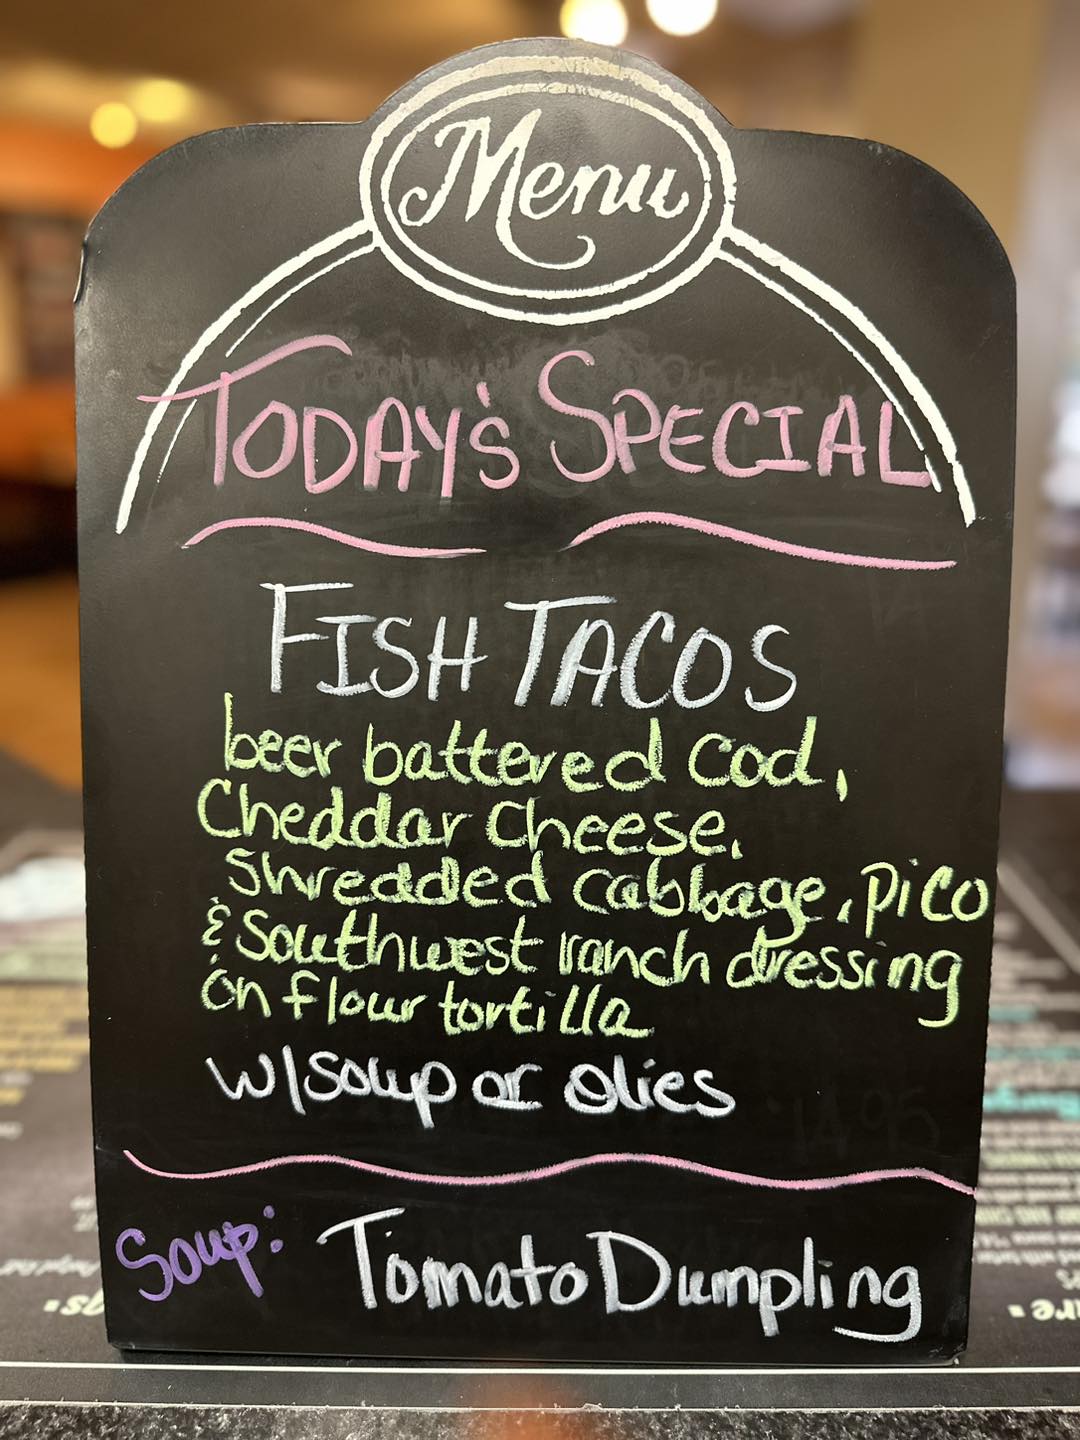 Menu
TODAY'S SPECIAL
FISH TACOS
beer battered cod,
Cheddar Cheese,
Shredded cabbage, pico
& Southwest ranch dressing
on flour tortilla
w/soup or slies
14.95
Soup: Tomato Dumpling